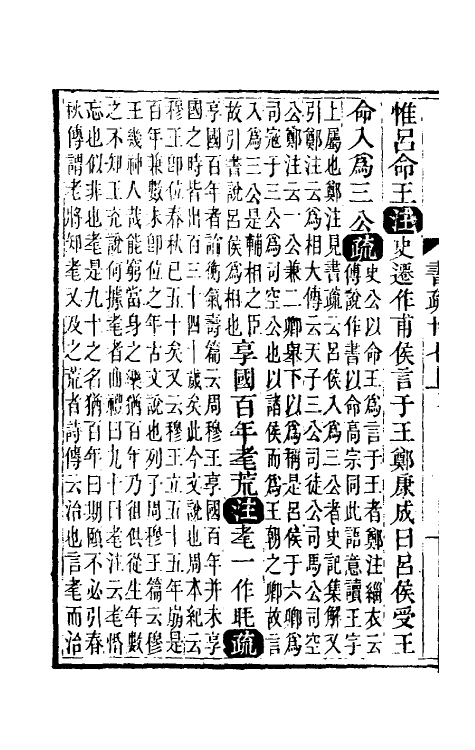 書疏廿七上 一
惟呂命王注史遷作甫侯言于王鄭康成曰呂侯受王
命入爲三公疏
史公以命王爲言于王者鄭注緇衣云
傳說作書以命高宗同此語意讀王字
上屬也鄭注見書疏云呂侯入爲三公者史記集解又
引鄭注云爲相大傳云天子三公司徒公司馬公司空
公鄭注云一公兼二卿舉下以爲稱是呂侯于六卿爲
司寇于三公爲司空公也以諸侯而爲王朝之卿故言
入爲三公是輔相之臣
故引書說呂侯爲相也
享國百年耄荒注耄一作眊疏
享國百年者論衡氣壽篇云周穆王享國百年并未享
國之時皆出百三十四十歲矣此今文說也周本紀云
穆王卽位春秋已五十矣又云穆王立五十五年崩是
百年兼數未卽位之年古文說也列子周穆王篇云穆
王幾神人哉能窮當身之樂猶百年乃徂俱從生年數
之不知王充說何據耄者曲禮曰九十曰耄注云耄惛
忘也似非也耄是九十之名猶百年曰期頤不必引春
秋傳謂老將知耄又及之荒者詩傳云治也言耄而治